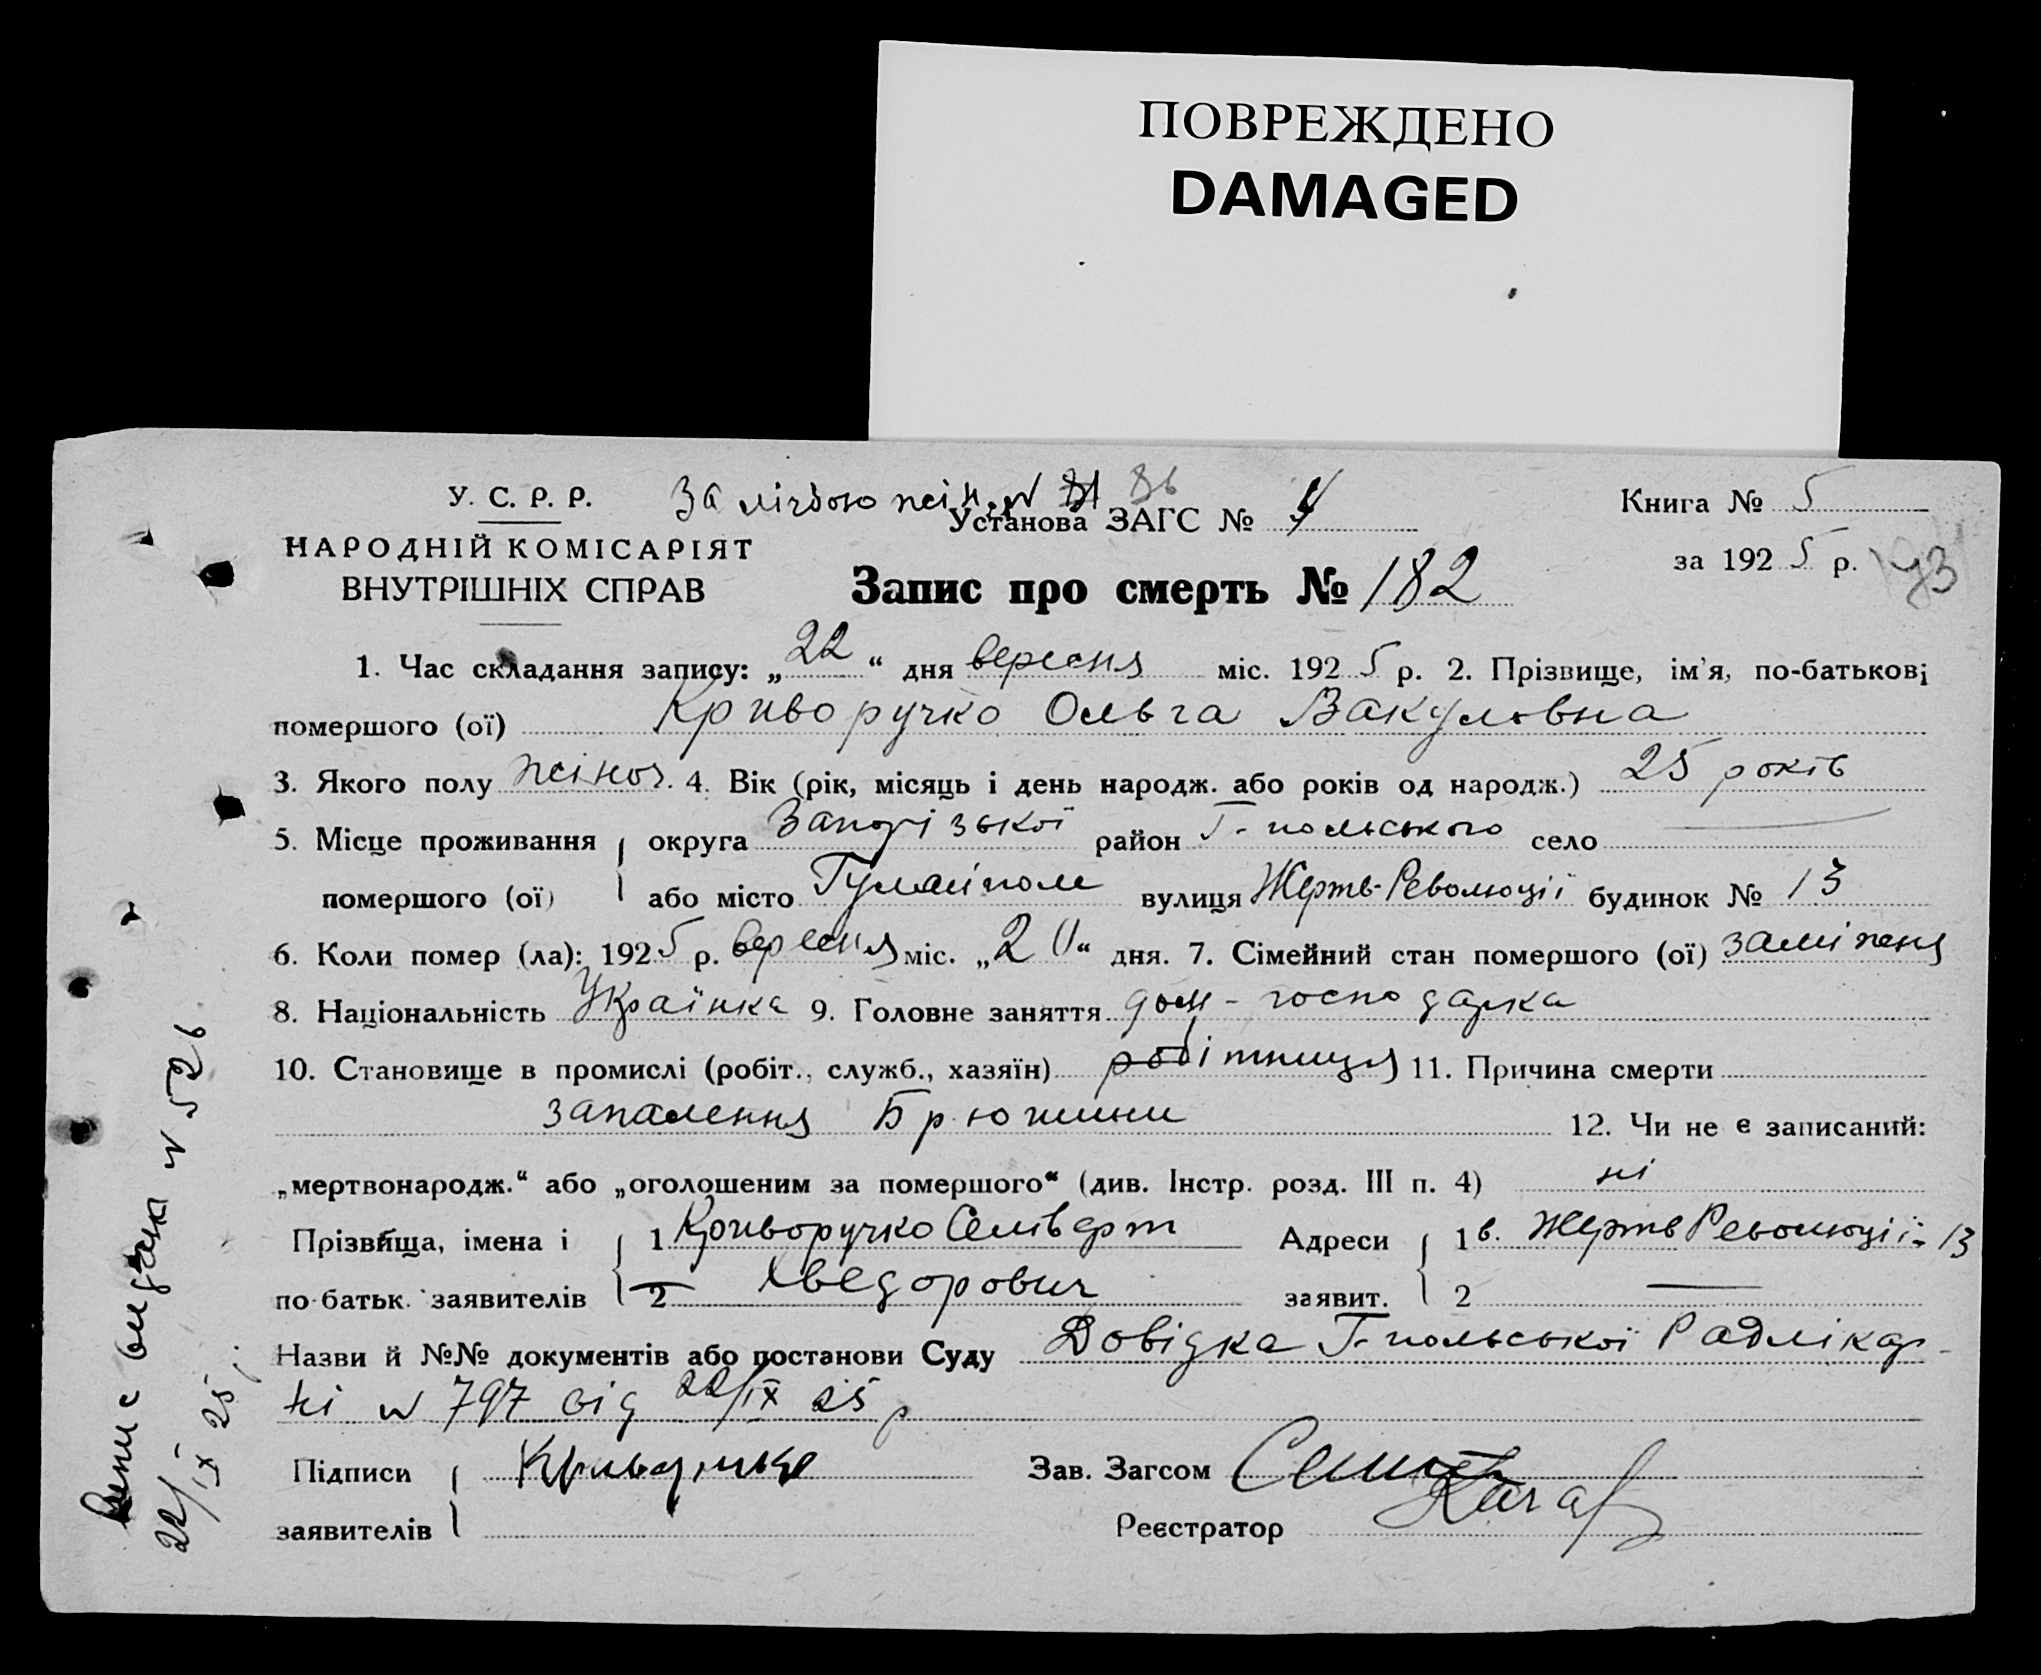 ПОВРЕЖДЕНО
DAMAGED
У. С. Р. Р.
За лічбою жін. № 81 86
Установа ЗАГС № 4
Книга № 5
НАРОДНІЙ КОМІСАРІЯТ
ВНУТРІШНІХ СПРАВ
за 1925 р.
Запис про смерть № 182
1. Час складання запису: „22“ дня вересня міс. 1925 р. 2. Прізвище, ім'я, по-батькові
помершого (ої) Криворучко Ольга Вакуловна
3. Якого полу жіноч. 4. Вік (рік, місяць і день народж. або років од народж.) 25 років
5. Місце проживання округа Запорізької район Г-польського село —
помершого (ої) або місто Гуляйполе вулиця Жертв-Революції будинок № 13
6. Коли помер (ла): 1925 р. вересня міс. „20“ дня. 7. Сімейний стан помершого (ої) заміжня
8. Національність Українка 9. Головне заняття дом-господарка
10. Становище в промислі (робіт., служб., хазяїн) робітниця 11. Причина смерти
запалення Брюшини 12. Чи не є записаний:
„мертвонародж.“ або „оголошеним за помершого“ (див. Інстр. розд. III п. 4) ні
Прізвища, імена і 1 Криворучко Селіверт Адреси 1 в. Жертв Революції-13
по-батьк. заявителів 2 Хведорович заявит. 2 —
Назви й №№ документів або постанови Суду Довідка Г-польської Радлікар-
ні № 797 від 22/IX 25 р
Підписи Зав. Загсом
заявителів Реєстратор
видана № 526
22/IX 25